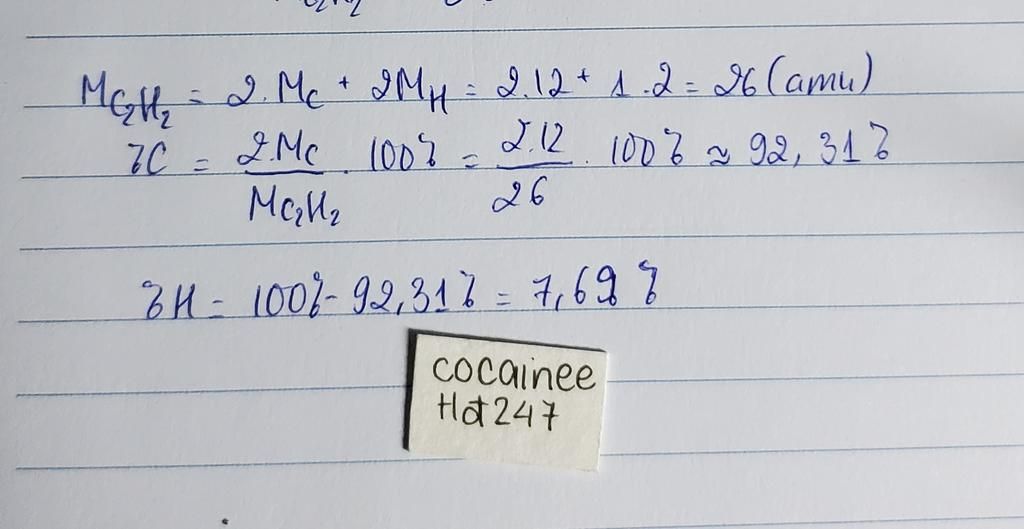 C₂H₂
M_C₂H₂ = 2.M_C + 2M_H = 2.12 + 1.2 = 26 (amu)
%C = 2.M_C / M_C₂H₂ . 100% = 2.12 / 26 . 100% ≈ 92,31%
%H = 100% - 92,31% = 7,69%
cocainee
Hot247